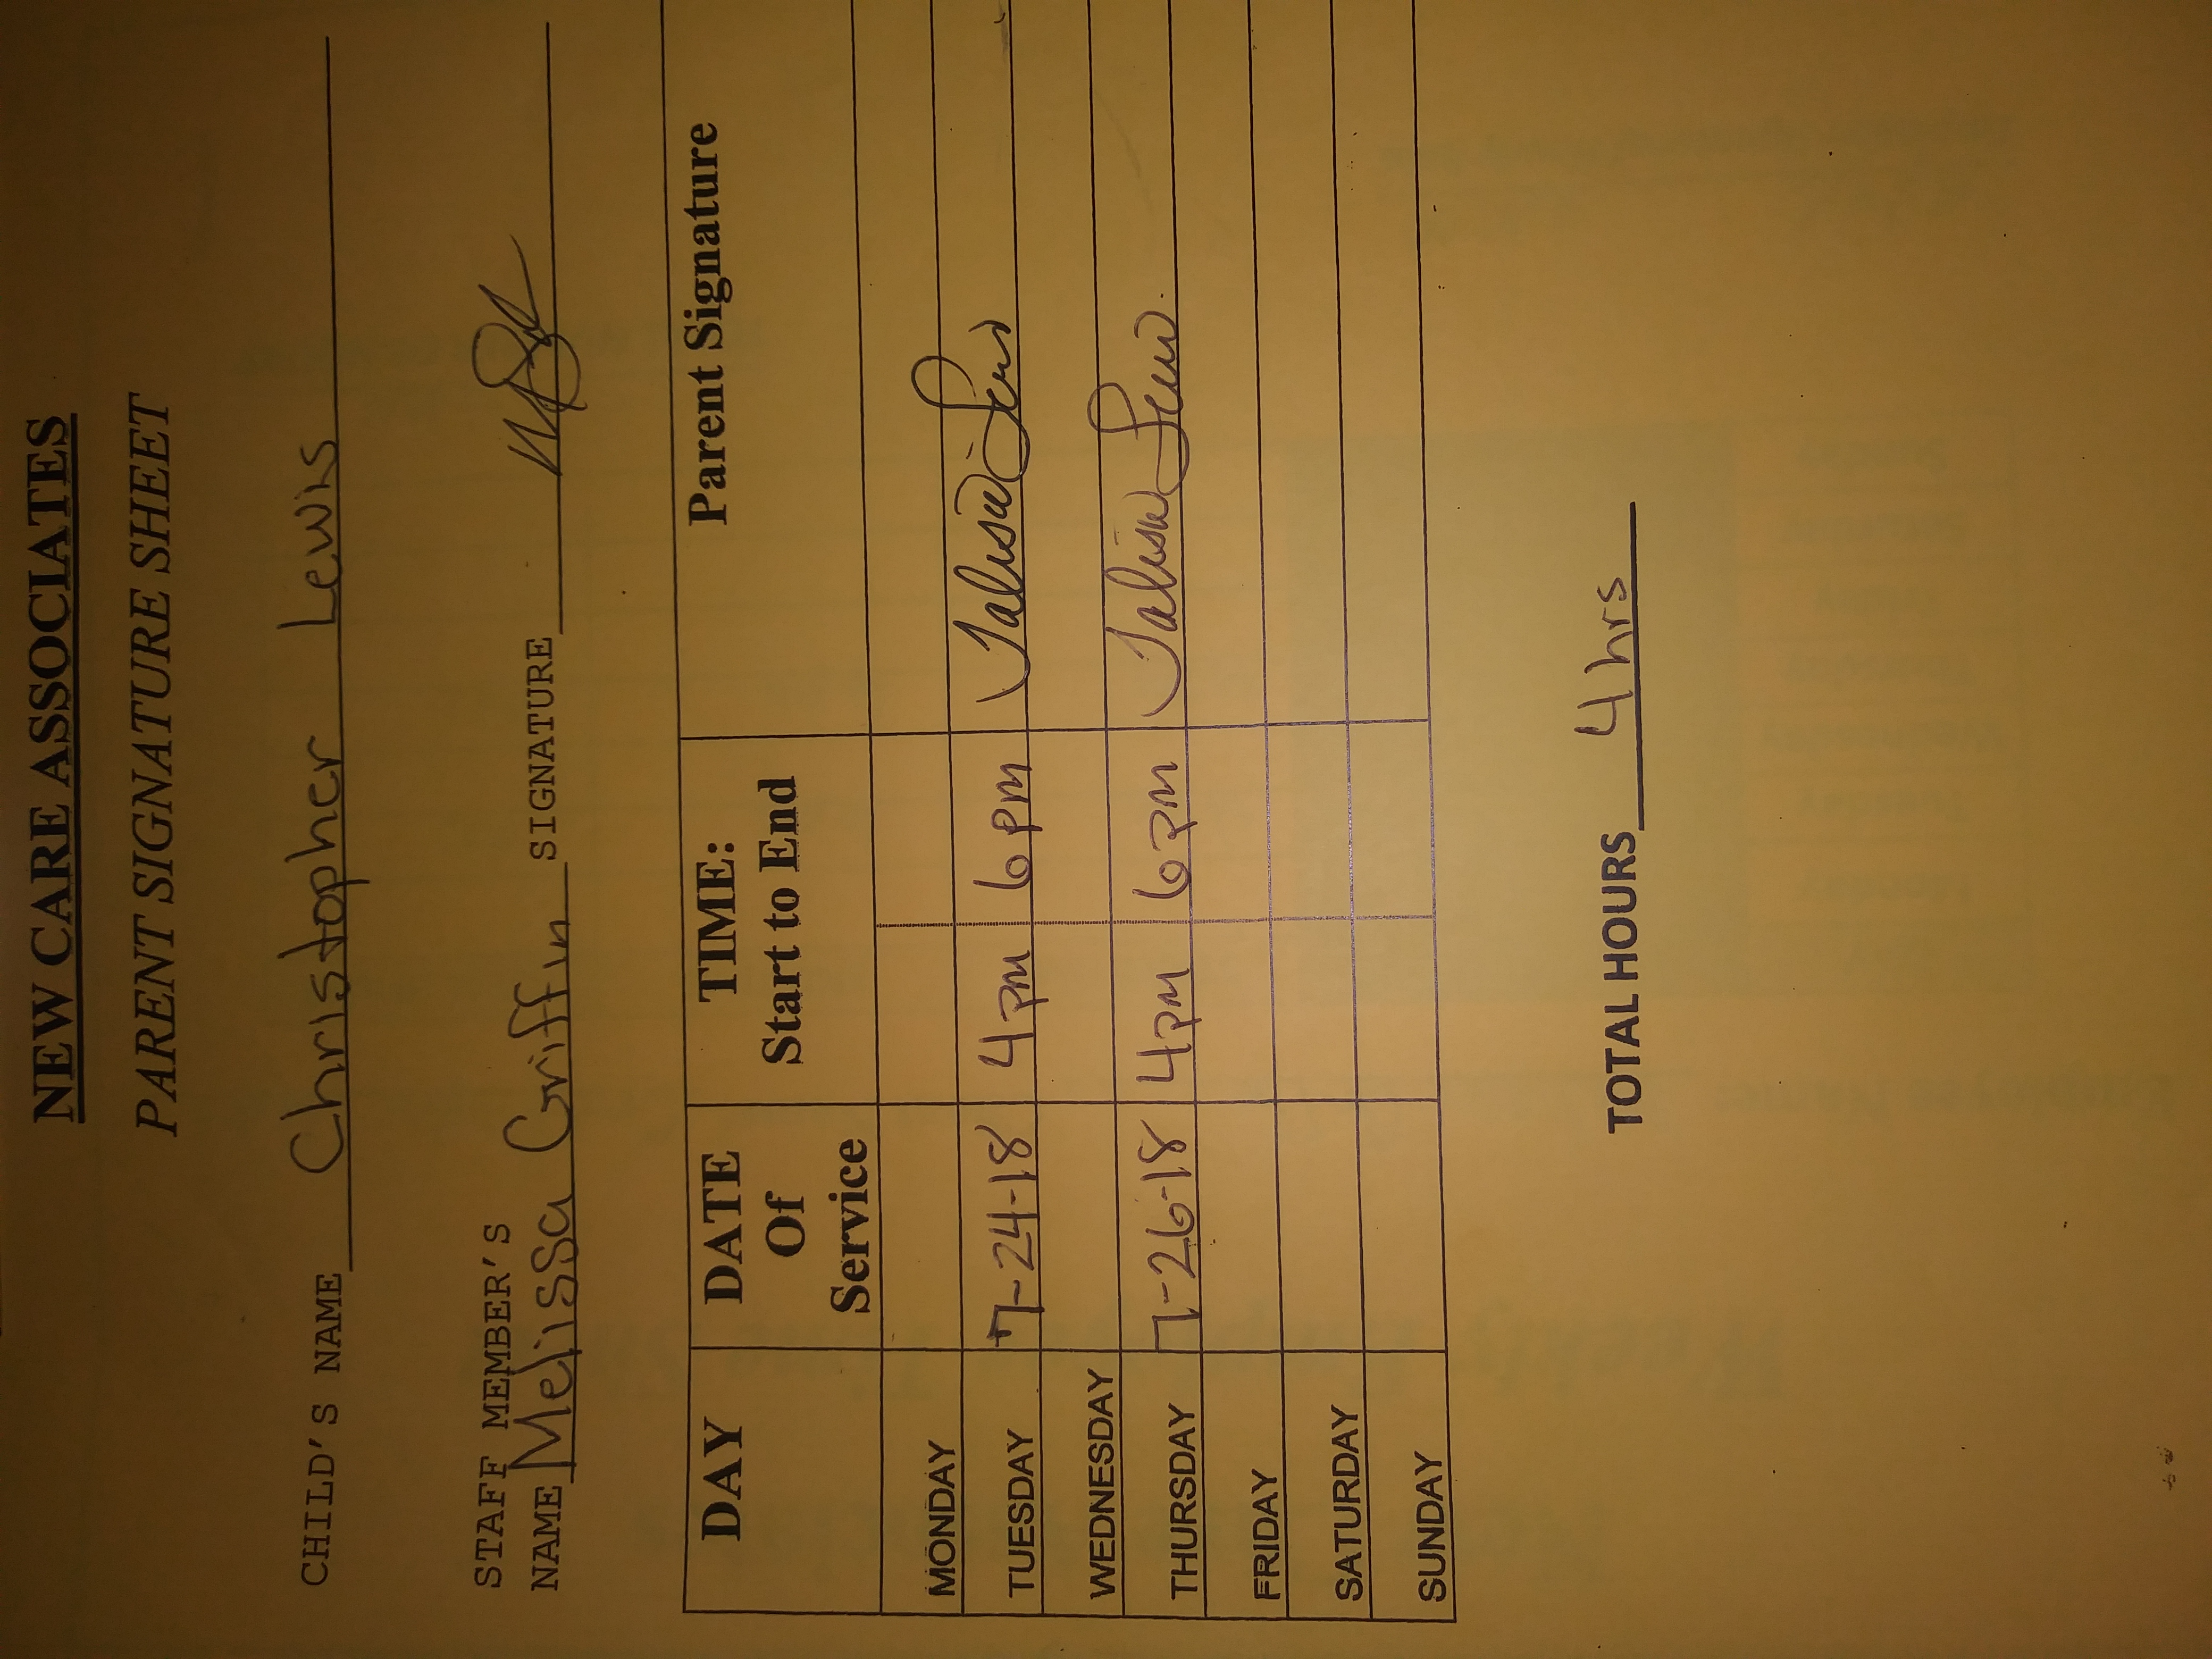 NEW CARE ASSOCIATES
PARENT SIGNATURE SHEET
CHILD'S NAME Christopher Lewis
STAFF MEMBER'S
NAME Melissa Griffin SIGNATURE
DAY DATE Of Service TIME: Start to End Parent Signature
MONDAY
TUESDAY 7-24-18 4pm 6pm Talisa Lewis
WEDNESDAY
THURSDAY 7-26-18 4pm 6pm Talisa Lewis
FRIDAY
SATURDAY
SUNDAY
TOTAL HOURS 4 hrs